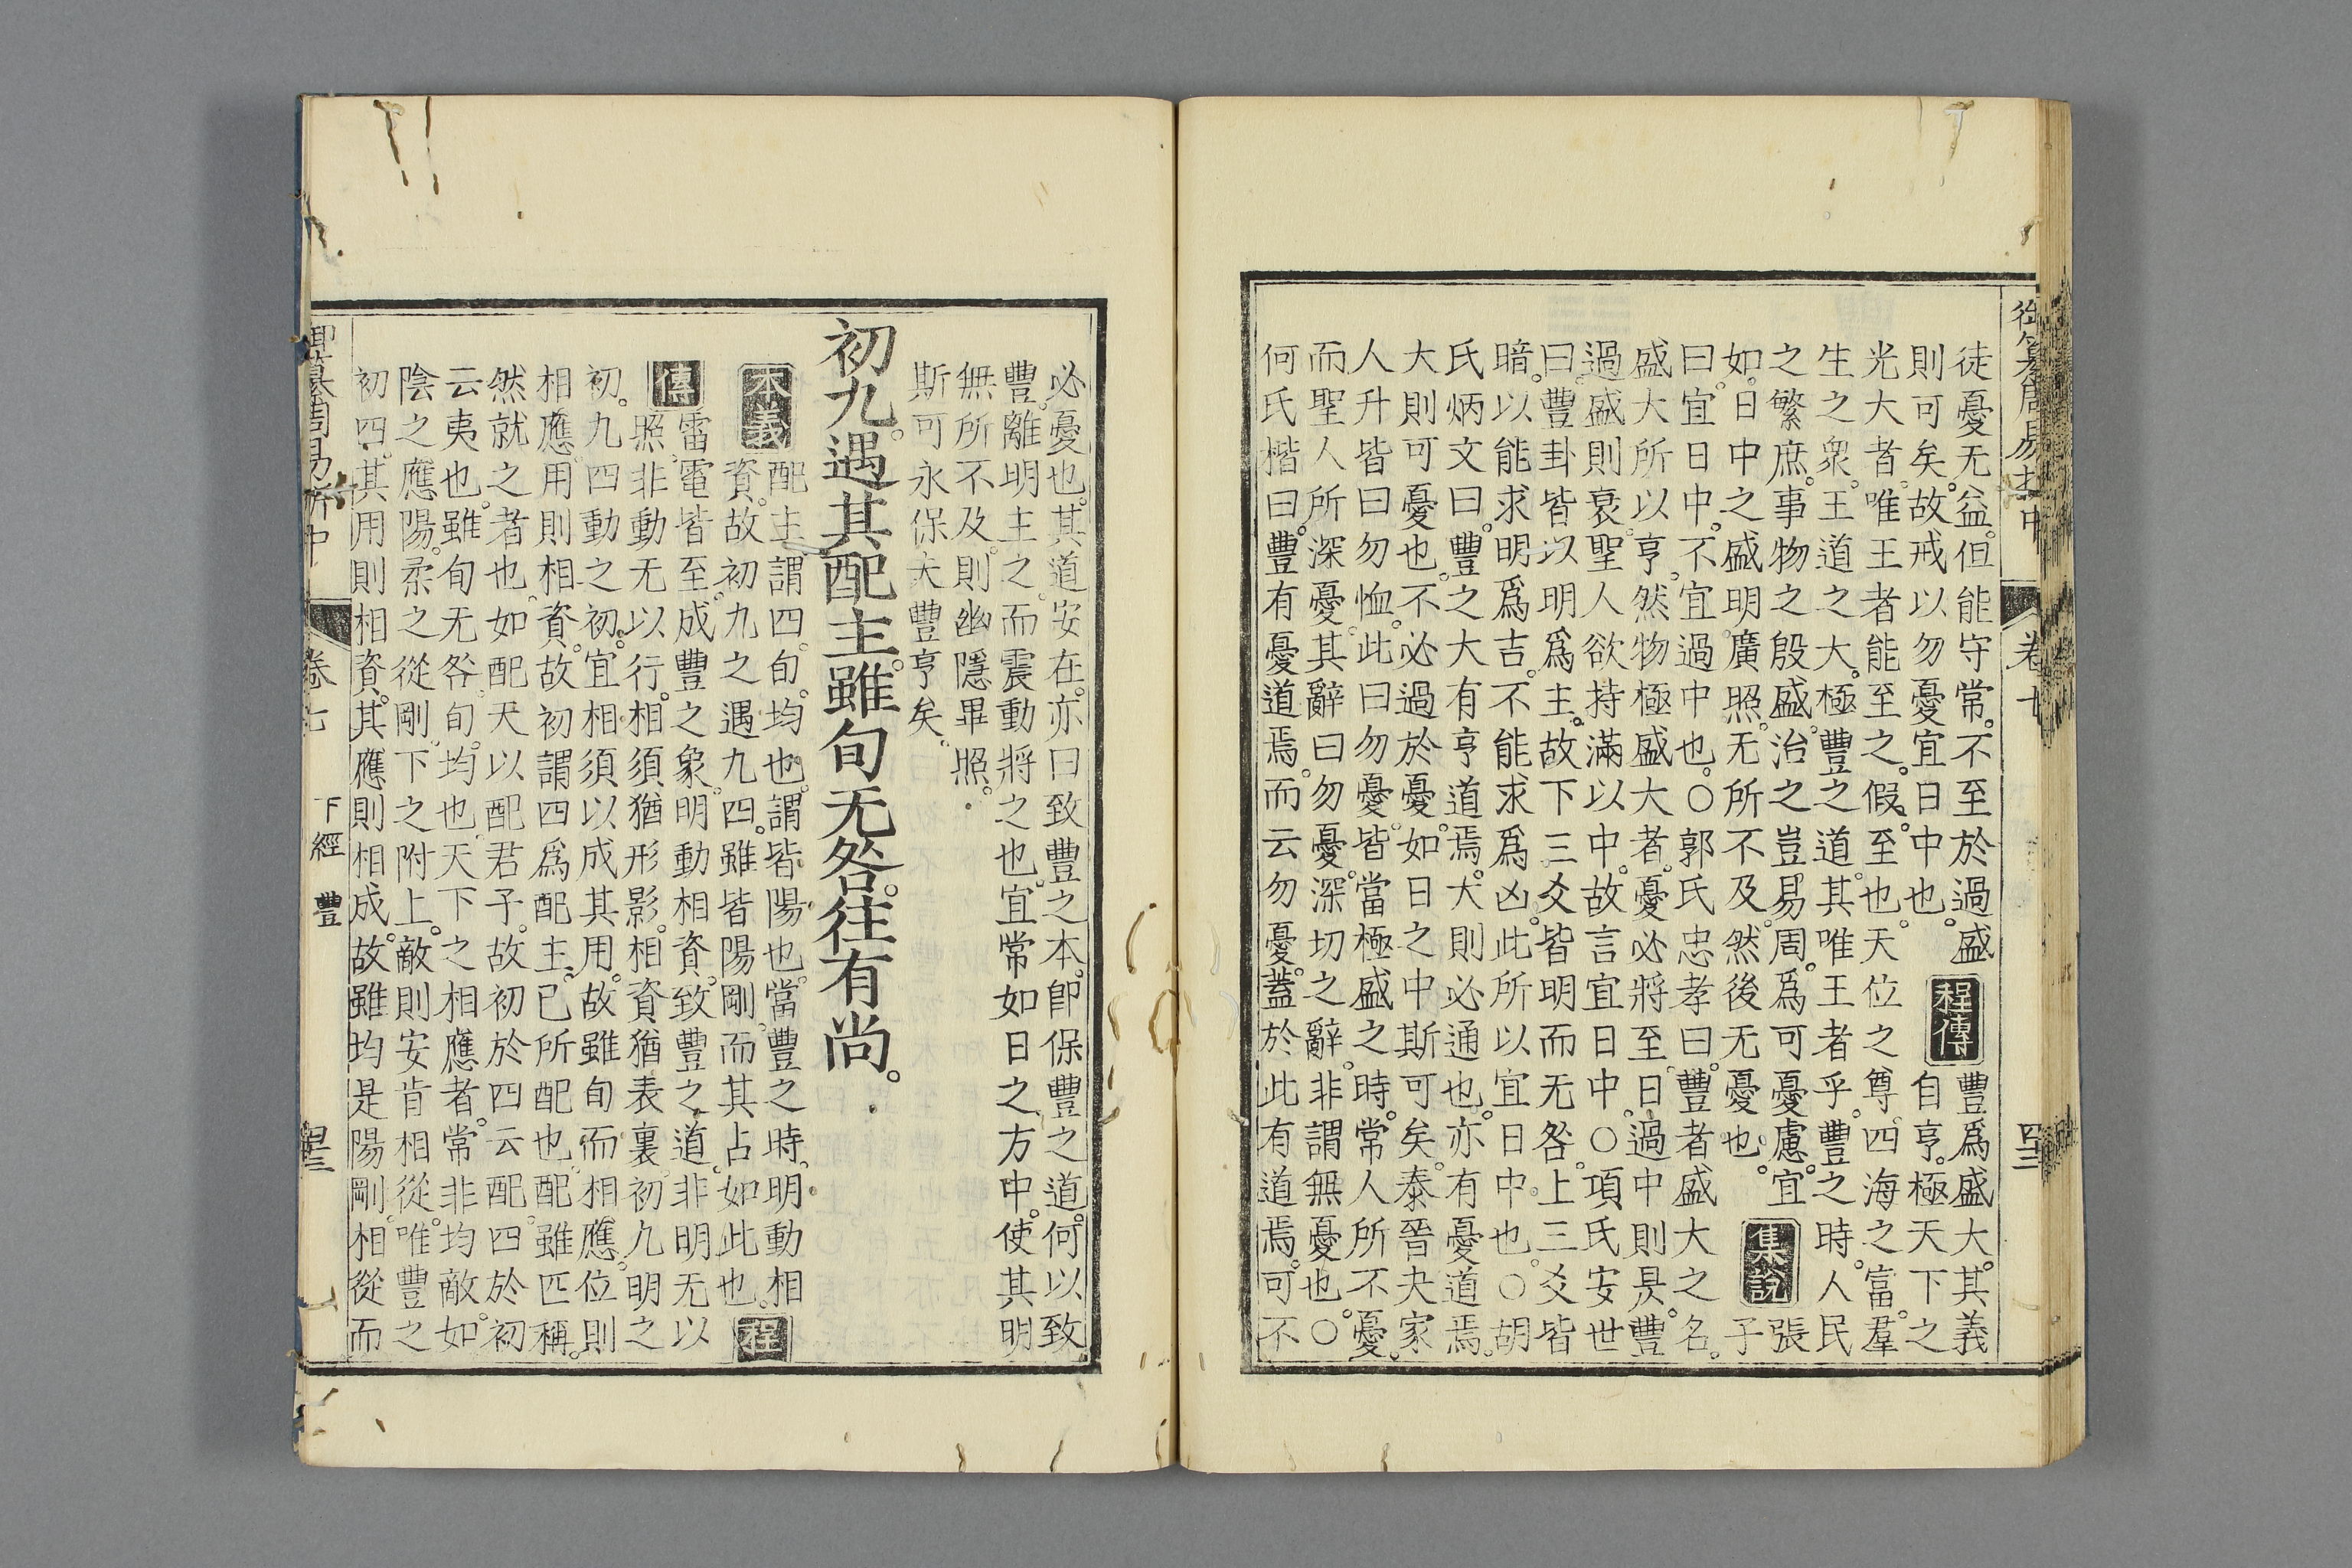 御纂周易折中 卷七 四三
徒憂无益。但能守常。不至於過盛
則可矣。故戒以勿憂宜日中也。
程傳
豐爲盛大。其義
自亨。極天下之
光大者。唯王者能至之。假。至也。天位之尊。四海之富。羣
生之衆。王道之大。極豐之道。其唯王者乎。豐之時。人民
之繁庶。事物之殷盛。治之豈易周。爲可憂慮。宜
如日中之盛明廣照。无所不及。然後无憂也。
集說
張
子
曰。宜日中。不宜過中也。○郭氏忠孝曰。豐者盛大之名。
盛大所以亨。然物極盛大者。憂必將至。日過中則昃。豐
過盛則衰。聖人欲持滿以中。故言宜日中。○項氏安世
曰。豐卦皆以明爲主。故下三爻皆明而无咎。上三爻皆
暗。以能求明爲吉。不能求爲凶。此所以宜日中也。○胡
氏炳文曰。豐之大有亨道焉。大則必通也。亦有憂道焉。
大則可憂也。不必過於憂。如日之中斯可矣。泰晉夬家
人升皆曰勿恤。此曰勿憂。皆當極盛之時。常人所不憂。
而聖人所深憂。其辭曰勿憂。深切之辭。非謂無憂也。○
何氏楷曰。豐有憂道焉。而云勿憂。蓋於此有道焉。可不
必憂也。其道安在。亦曰致豐之本。卽保豐之道。何以致
豐。離明主之。而震動將之也。宜常如日之方中。使其明
無所不及。則幽隱畢照。
斯可永保大豐亨矣。
初九。遇其配主。雖旬无咎。往有尚。
本義
配主。謂四。旬。均也。謂皆陽也。當豐之時。明動相
資。故初九之遇九四。雖皆陽剛。而其占如此也。
程
傳
雷電皆至。成豐之象。明動相資。致豐之道。非明无以
照。非動无以行。相須猶形影。相資猶表裏。初九明之
初。九四動之初。宜相須以成其用。故雖旬而相應。位則
相應。用則相資。故初謂四爲配主。己所配也。配雖匹稱。
然就之者也。如配天以配君子。故初於四云配。四於初
云夷也。雖旬无咎。旬。均也。天下之相應者。常非均敵。如
陰之應陽。柔之從剛。下之附上。敵則安肯相從。唯豐之
初四。其用則相資。其應則相成。故雖均是陽剛。相從而
御纂周易折中 卷七 下經 豐 四三